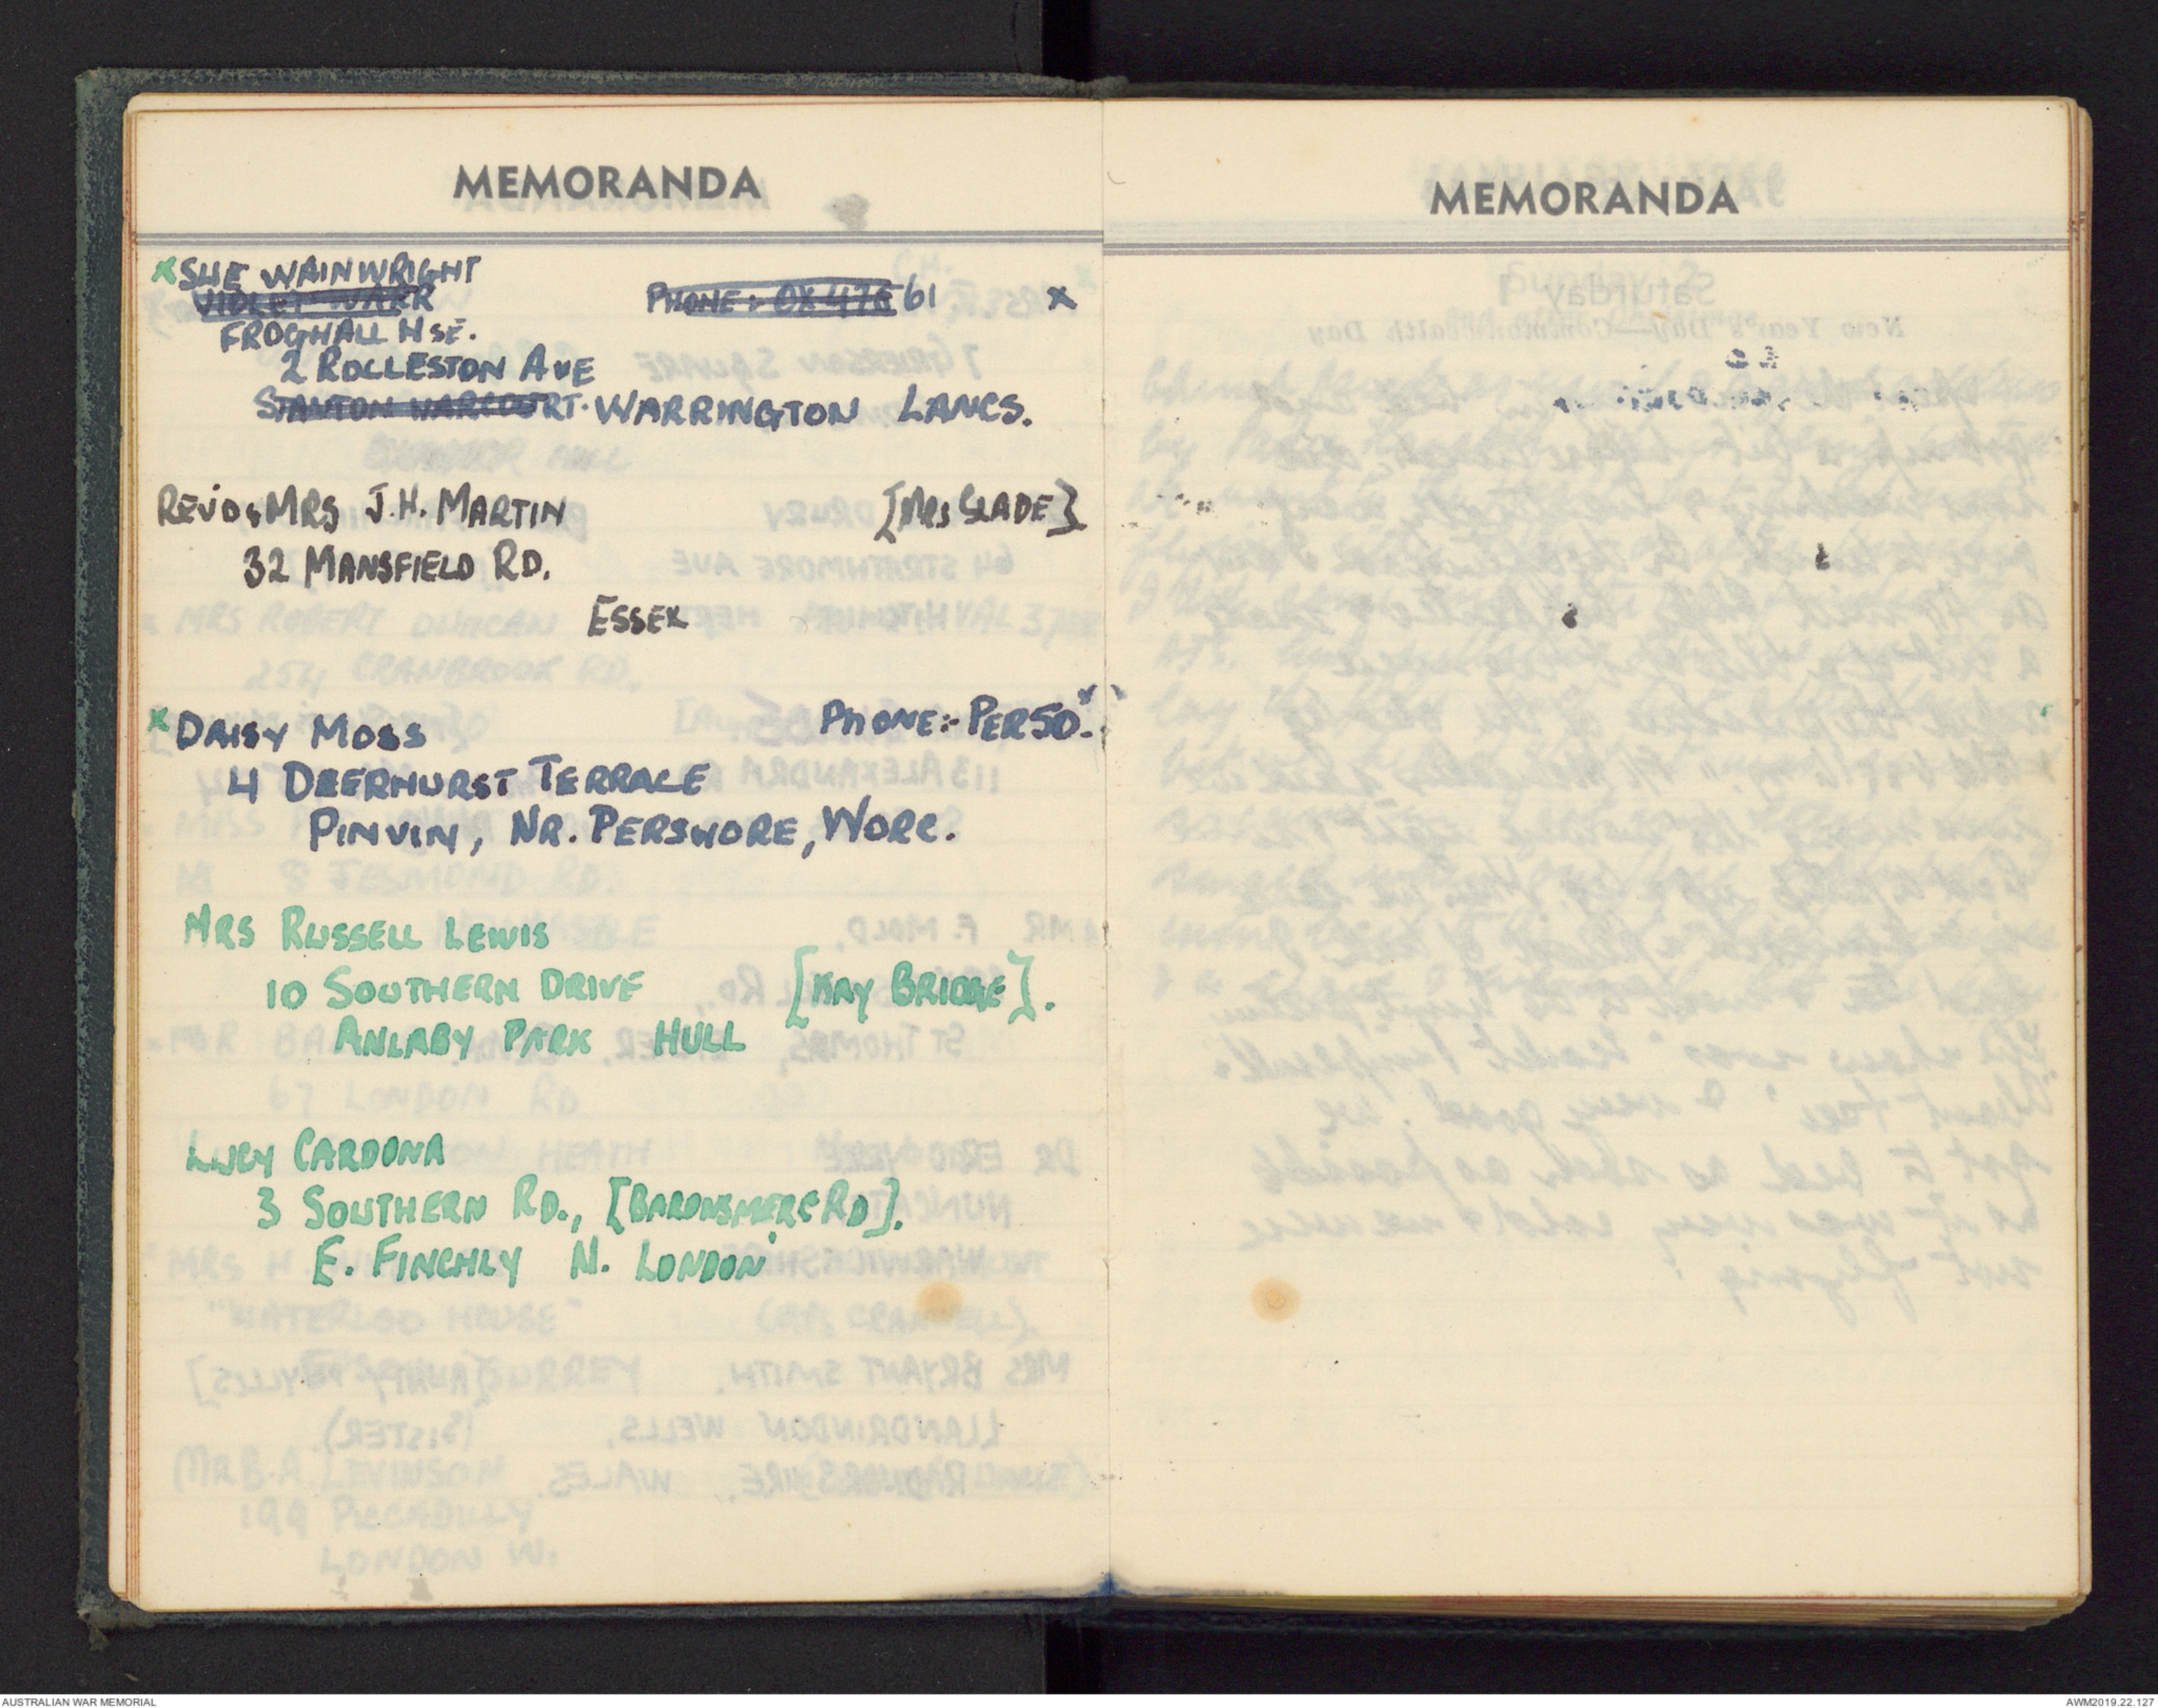 MEMORANDA
x SHE WAINWRIGHT
VIOLET WARR
PHONE:- OX 476 61 x
FROGHALL HSE.
2 ROLLESTON AVE
STANTON HARCOURT. WARRINGTON LANCS.
REVD & MRS J.H. MARTIN [MRS SLADE]
32 MANSFIELD RD.
ESSEX
x DAISY MOSS PHONE:- PER50.
4 DEERHURST TERRACE
PINVIN, NR. PERSHORE, WORC.
MRS RUSSELL LEWIS
10 SOUTHERN DRIVE [KAY BRIDGE].
ANLABY PARK HULL
LUCY CARDONA
3 SOUTHERN RD., [BARONSMERE RD].
E. FINCHLY N. LONDON
MEMORANDA
AUSTRALIAN WAR MEMORIAL
AWM2019.22.127